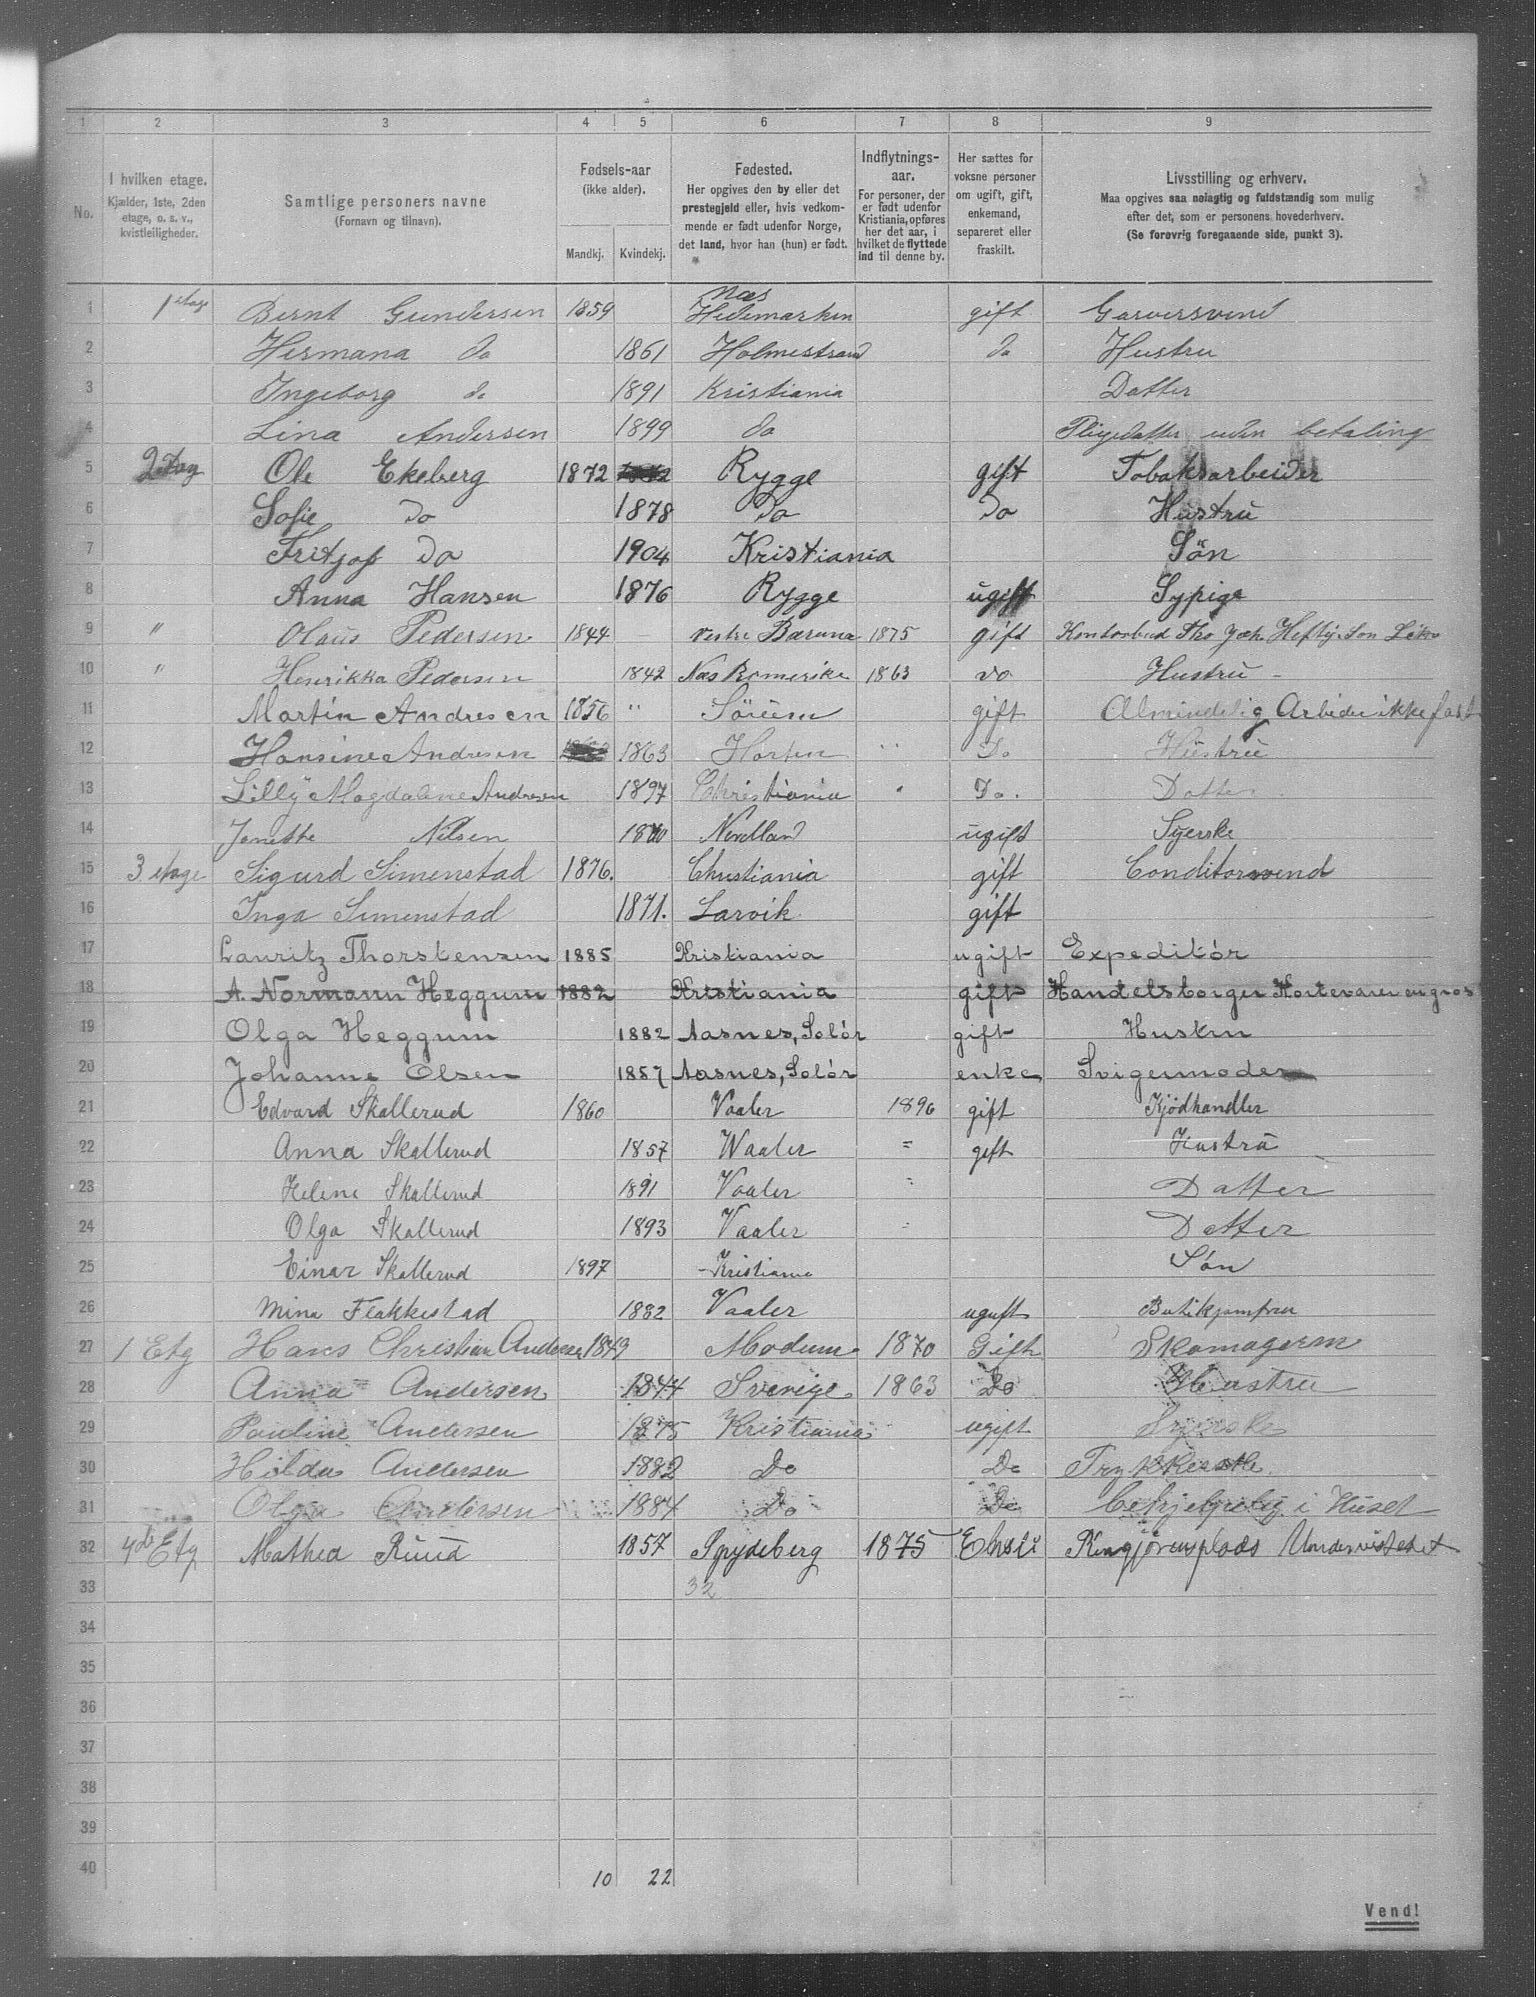 1 2 3 4 5 6 7 8 9
No. | I hvilken etage. Kjælder, 1ste, 2den etage, o. s. v., kvistleiligheder. | Samtlige personers navne (Fornavn og tilnavn). | Fødsels-aar (ikke alder). Mandkj. Kvindekj. | Fødested. Her opgives den by eller det prestegjeld eller, hvis vedkommende er født udenfor Norge, det land, hvor han (hun) er født. | Indflytnings-aar. For personer, der er født udenfor Kristiania, opføres her det aar, i hvilket de flyttede ind til denne by. | Her sættes for voksne personer om ugift, gift, enkemand, separeret eller fraskilt. | Livsstilling og erhverv. Maa opgives saa nøiagtig og fuldstændig som mulig efter det, som er personens hovederhverv. (Se forøvrig foregaaende side, punkt 3).
1 1 etage Bernt Gundersen 1859 Næs Hedemarken gift Garversvend
2 Hermana do 1861 Holmestrand do Hustru
3 Ingeborg do 1891 Kristiania Datter
4 Lina Andersen 1899 do Pleiedatter uden betaling
5 2 Etag Ole Ekeberg 1872 Rygge gift Tobaksarbeider
6 Sofie Do 1878 Do Do Hustru
7 Fritjof Do 1904 Kristiania Sön
8 Anna Hansen 1876 Rygge ugift Sypige
9 " Olaus Pedersen 1844 Vestre Bærum 1875 gift Kontorbud Tho Joh. Heftye Søn
10 " Henrikka Pedersen 1842 Næs Romerike 1863 Do Hustru
11 Martin Andresen 1856 " Sörum gift Almindelig Arbeider ikke fast
12 Hansine Andresen 1863 Horten " Do Hustru
13 Lilly Magdaline Andresen 1897 Christiania " Do. Datter
14 Janette Nilsen ugift Syerske
15 3 etage Sigurd Simenstad 1876. Christiania gift Conditorsvend
16 Inga Simenstad 1871. Larvik gift
17 Lauritz Thorstensen 1885 Kristiania ugift Expeditör
18 A. Normann Heggum 1882 Kristiania gift Handelsborger Kortevarer en gros
19 Olga Heggum 1882 Aasnes, Solör gift Hustru
20 Johanne Olsen 1857 Aasnes, Solör enke Svigermoder
21 Edvard Skallerud 1860 Vaaler 1896 gift Kjödhandler
22 Anna Skallerud 1857 Waaler = gift Hustru
23 Helene Skallerud 1891 Vaaler = Datter
24 Olga Skallerud 1893 Vaaler = Datter
25 Einar Skallerud 1897 Kristiania Søn
26 Mina Flakkestad 1882 Vaaler ugift Butikjomfru
27 1 Etg Hans Christian Andersen 1849 Modum 1870 Gift Skomagerm
28 Anna Andersen 1844 Sverige 1863 Do Hustru
29 Pauline Andersen 1875 Kristiania ugift Syerske
30 Hilda Andersen 1882 Do Do Trykkerske
31 Olga Andersen 1884 Do Do behjelpelig i Huset
32 4de Etg Mathea Ruud 1857 Spydeberg 1875 Enke
33 32
34
35
36
37
38
39
40 10 22
Vend!